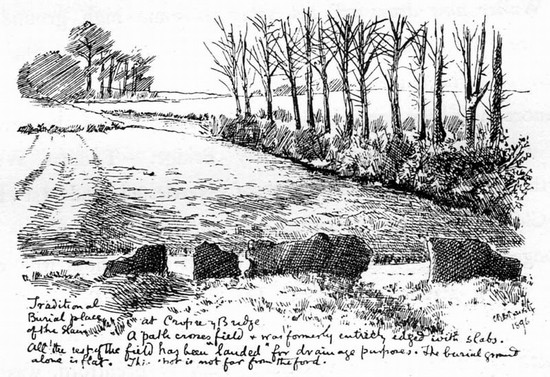 Traditional
Burial place
of the Slain at Cropredy Bridge
A path crosses field & was formerly entirely edged with slabs.
All the rest of the field has been "landed" for drainage purposes. The burial ground
alone is flat. This is not far from the ford.
1896